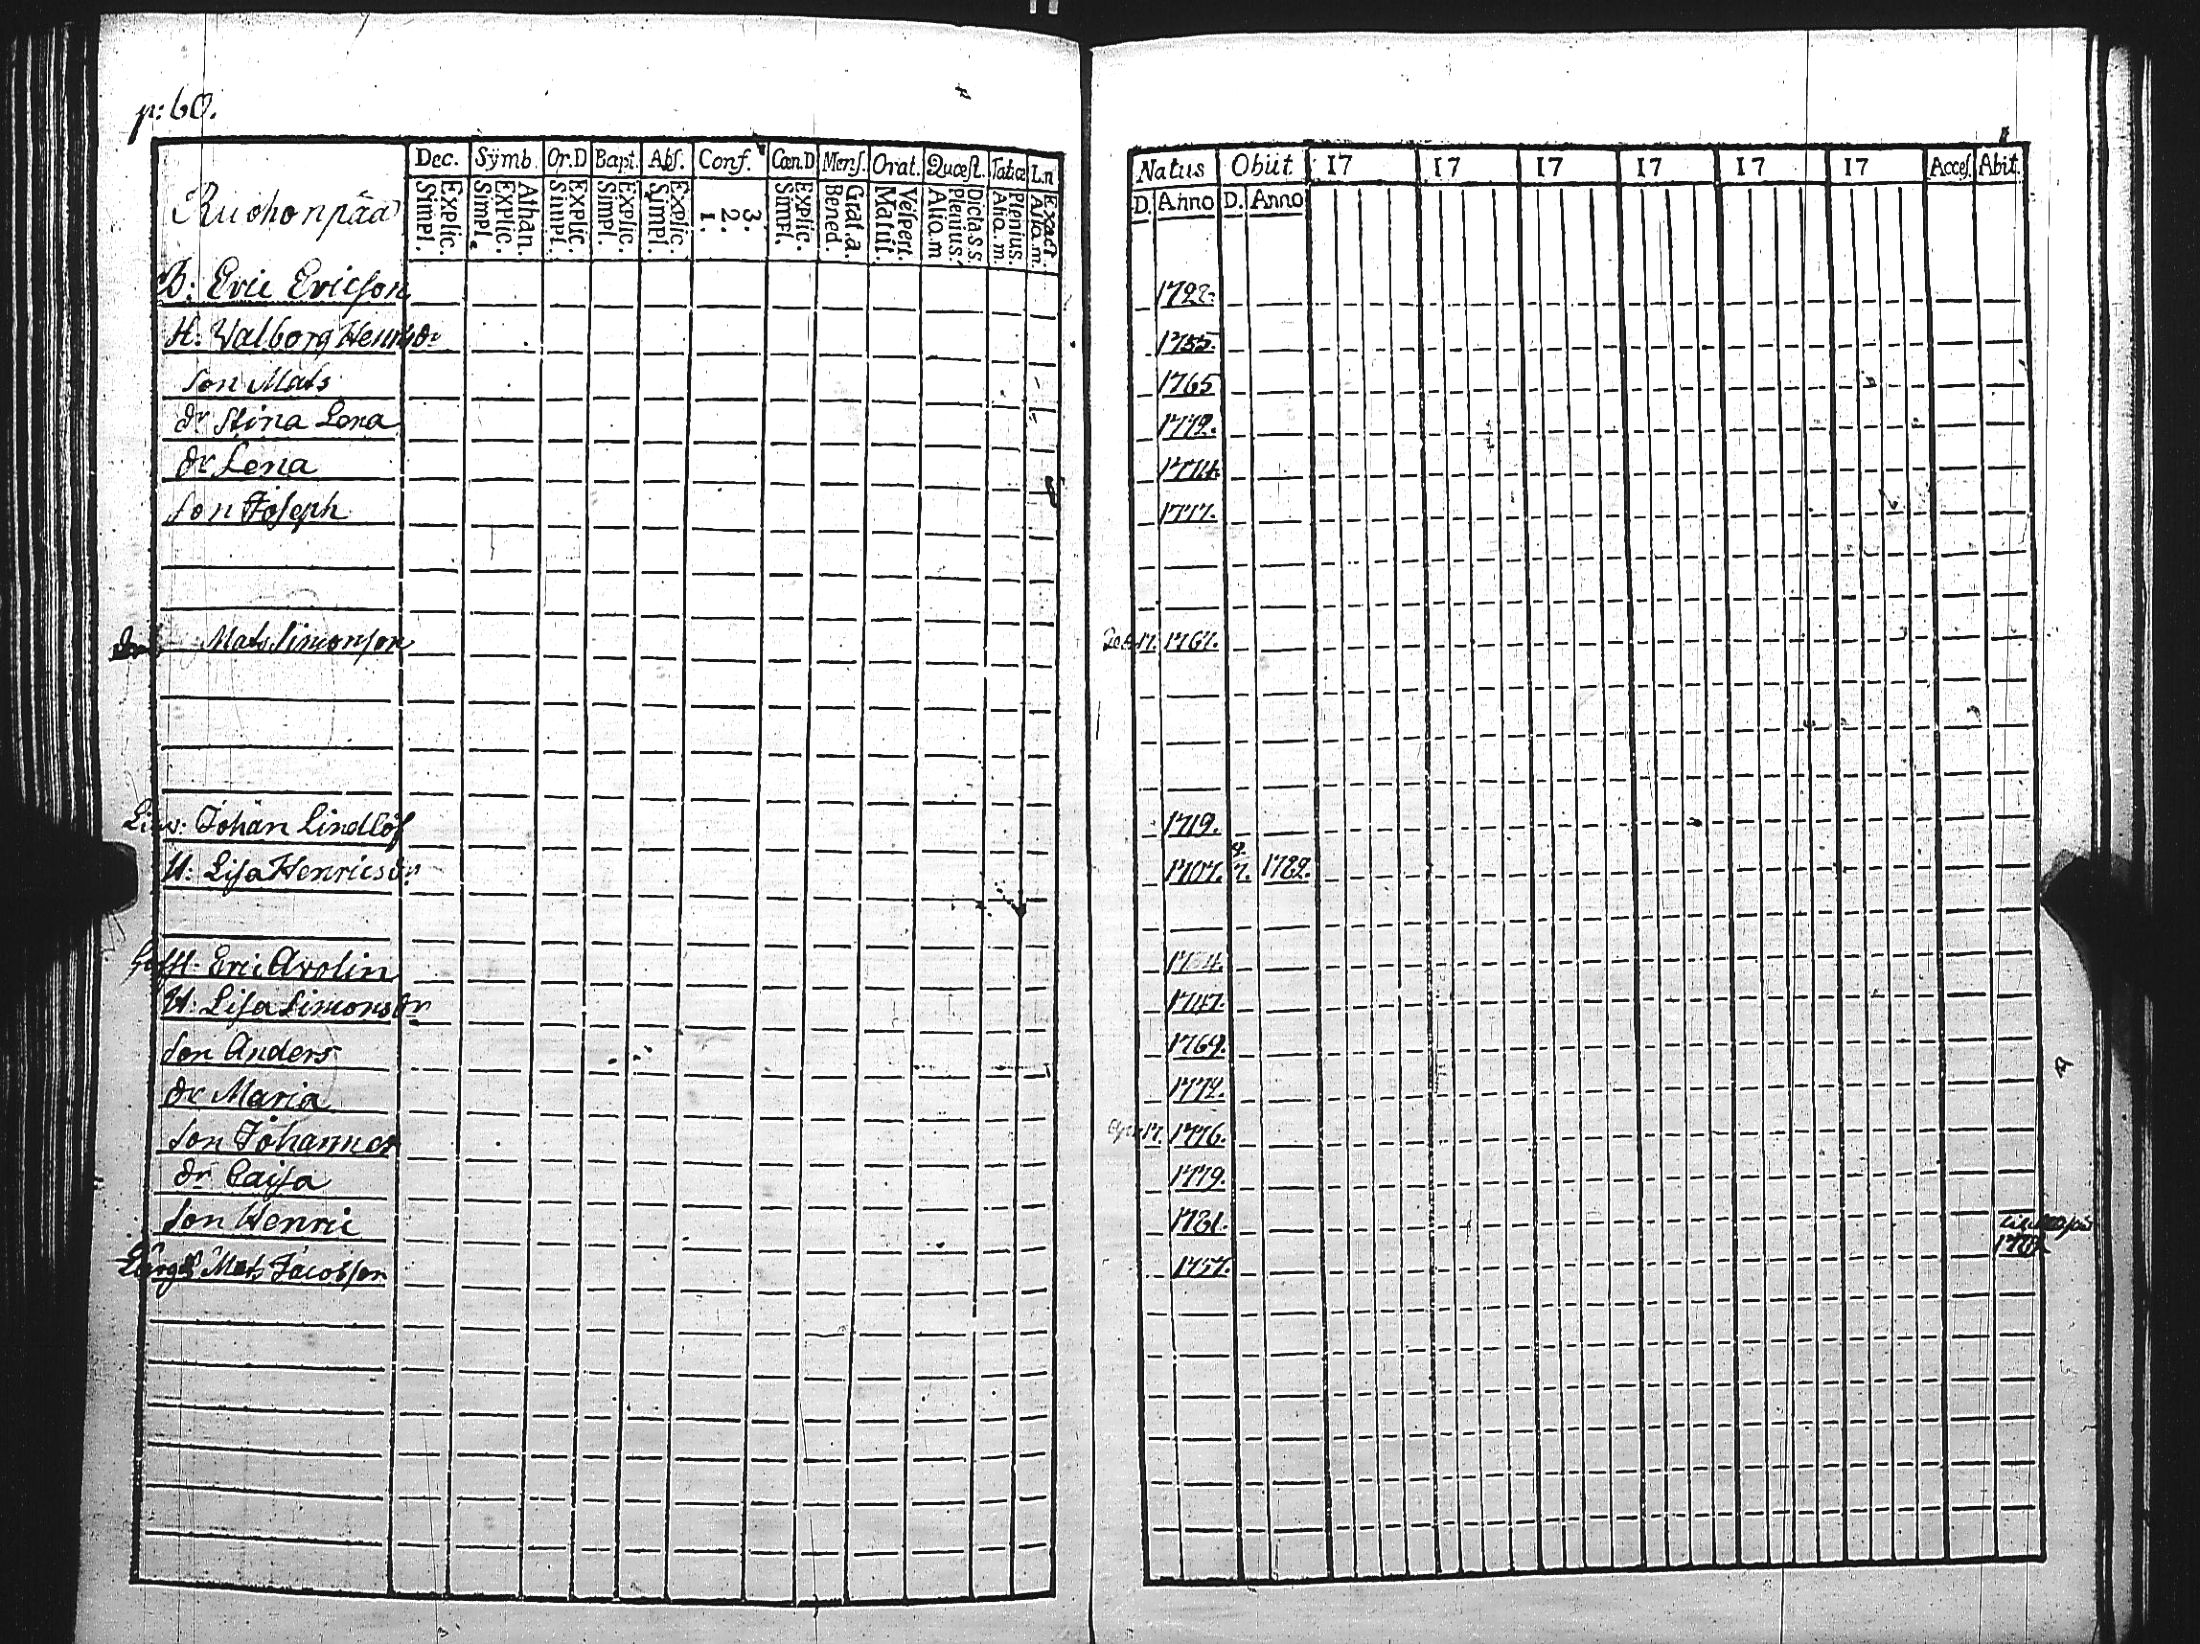 p: 60.
Dec. Sÿmb. Or.D Bapt. Abſ. Conf. Cœn.D Menſ. Orat. Quæſt. Tabiæ L.n
Ruohonpää
Explic. Simpl. Athan. Explic. Simpl. Explic. Simpl. Explic. Simpl. Explic. Simpl. 3. 2. 1. Explic. Simpl. Grat. a. Bened. Veſpert. Matut. Dicta S.S. Plenius. Aliq.m Plenius. Aliq.m Exact. Aliq.m.
B: Eric Ericſon
H: Valborg Henrsdr
Son Mats
dr Stina Lena
dr Lena
Son Joſeph
Mats Simonſon
Johan Lindlöf
H: Liſa Henricsdr
Eric Arolin
H: Liſa Simonsdr
Son Anders
dr Maria
Son Johannes
dr Caiſa
Son Henric
Mats Jacobſon
Natus Obiit 17 17 17 17 17 17 Acceſ. Abit.
D. Anno D. Anno
1722.
1755.
1765
1772.
1774.
1777.
17. 1767.
1719.
1707. 7. 1782.
1747.
1769.
1772.
17. 1776.
1779.
1781.
1757.